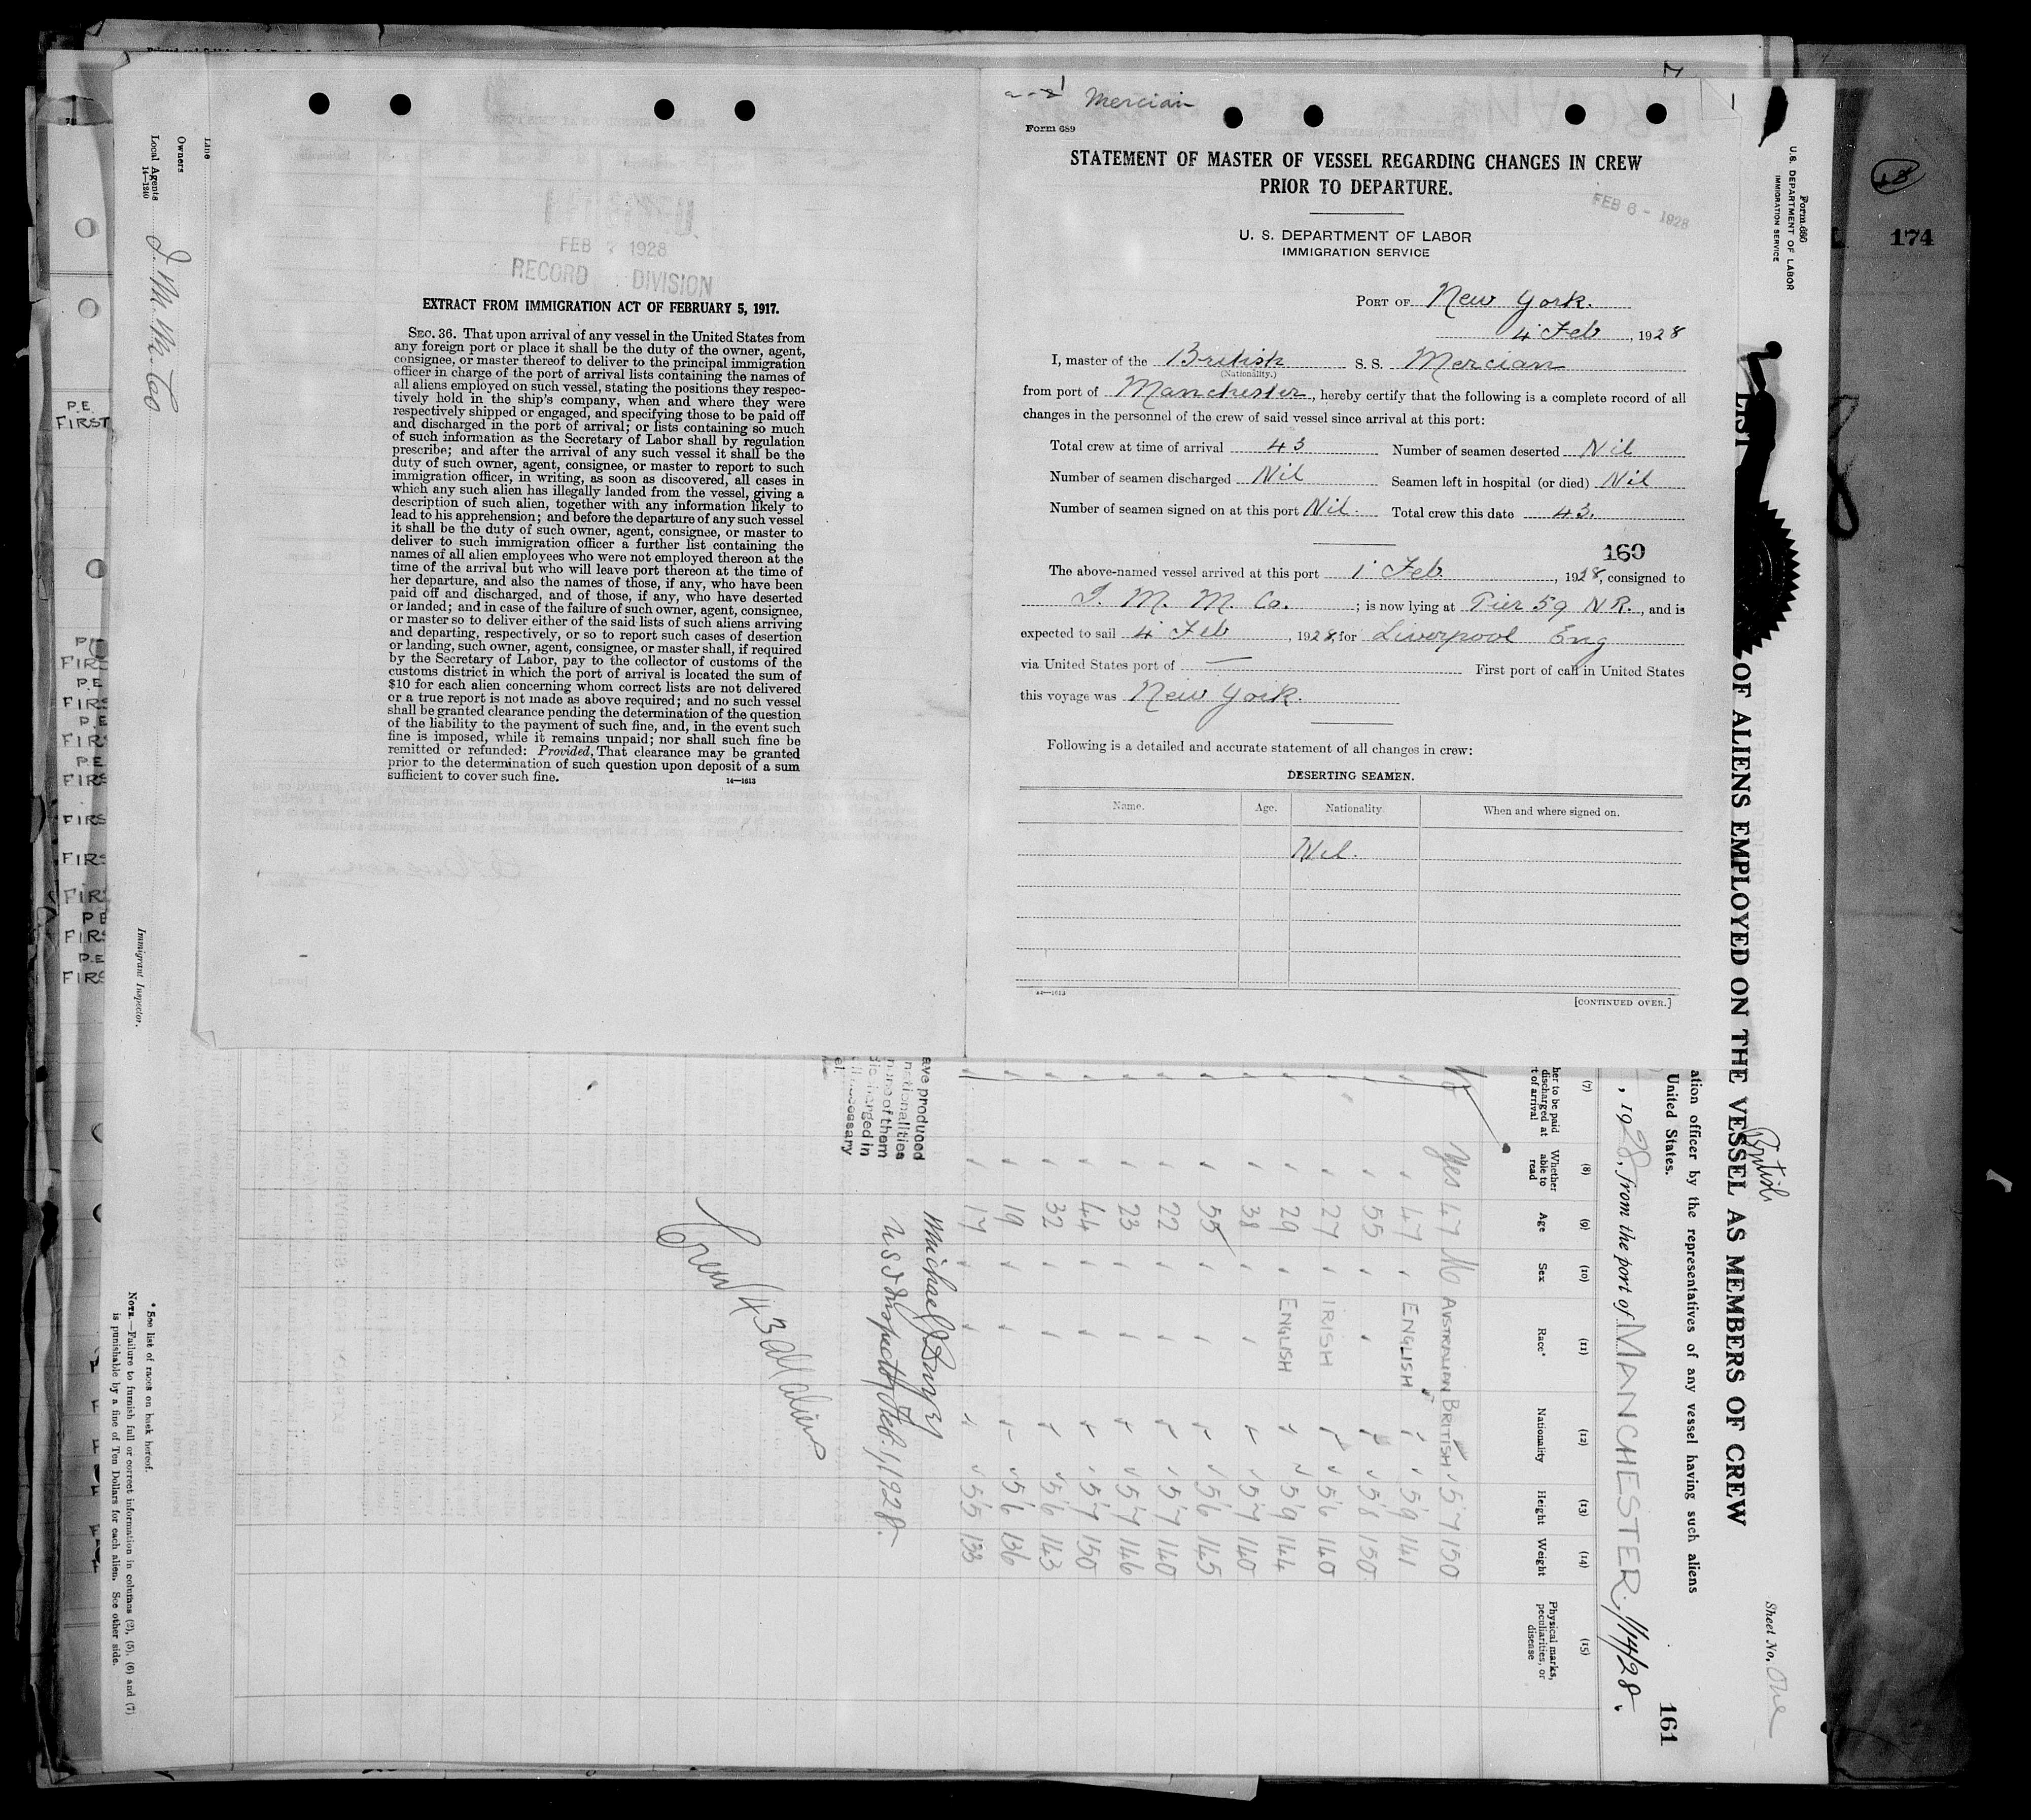 Mercian
Form 689
STATEMENT OF MASTER OF VESSEL REGARDING CHANGES IN CREW
PRIOR TO DEPARTURE.
FEB 6 - 1928
U. S. DEPARTMENT OF LABOR
IMMIGRATION SERVICE
PORT OF New York.
4 Feb, 1928
I, master of the British S. S. Mercian
(Nationality.)
from port of Manchester, hereby certify that the following is a complete record of all
changes in the personnel of the crew of said vessel since arrival at this port:
Total crew at time of arrival 43 Number of seamen deserted Nil
Number of seamen discharged Nil Seamen left in hospital (or died) Nil
Number of seamen signed on at this port Nil. Total crew this date 43.
160
The above-named vessel arrived at this port 1 Feb, 1928, consigned to
I. M. M. Co. ; is now lying at Pier 59 N R., and is
expected to sail 4 Feb, 1928, for Liverpool Eng
via United States port of — First port of call in United States
this voyage was New York.
Following is a detailed and accurate statement of all changes in crew:
DESERTING SEAMEN.
Name. Age. Nationality. When and where signed on.
Nil.
14—1613
[CONTINUED OVER.]
FEB 1928
RECORD DIVISION
EXTRACT FROM IMMIGRATION ACT OF FEBRUARY 5, 1917.
SEC. 36. That upon arrival of any vessel in the United States from
any foreign port or place it shall be the duty of the owner, agent,
consignee, or master thereof to deliver to the principal immigration
officer in charge of the port of arrival lists containing the names of
all aliens employed on such vessel, stating the positions they respec-
tively hold in the ship's company, when and where they were
respectively shipped or engaged, and specifying those to be paid off
and discharged in the port of arrival; or lists containing so much
of such information as the Secretary of Labor shall by regulation
prescribe; and after the arrival of any such vessel it shall be the
duty of such owner, agent, consignee, or master to report to such
immigration officer, in writing, as soon as discovered, all cases in
which any such alien has illegally landed from the vessel, giving a
description of such alien, together with any information likely to
lead to his apprehension; and before the departure of any such vessel
it shall be the duty of such owner, agent, consignee, or master to
deliver to such immigration officer a further list containing the
names of all alien employees who were not employed thereon at the
time of the arrival but who will leave port thereon at the time of
her departure, and also the names of those, if any, who have been
paid off and discharged, and of those, if any, who have deserted
or landed; and in case of the failure of such owner, agent, consignee,
or master so to deliver either of the said lists of such aliens arriving
and departing, respectively, or so to report such cases of desertion
or landing, such owner, agent, consignee, or master shall, if required
by the Secretary of Labor, pay to the collector of customs of the
customs district in which the port of arrival is located the sum of
$10 for each alien concerning whom correct lists are not delivered
or a true report is not made as above required; and no such vessel
shall be granted clearance pending the determination of the question
of the liability to the payment of such fine, and, in the event such
fine is imposed, while it remains unpaid; nor shall such fine be
remitted or refunded: Provided, That clearance may be granted
prior to the determination of such question upon deposit of a sum
sufficient to cover such fine.
14—1613
Line
Owners
Local Agents I. M. M. Coo
14—1240
Immigrant Inspector.
* See list of races on back hereof.
NOTE.—Failure to furnish full or correct information in columns (2), (5), (6) and (7)
is punishable by a fine of Ten Dollars for each alien. See other side.
Form 680
U. S. DEPARTMENT OF LABOR
IMMIGRATION SERVICE
174
Sheet No. One
British
LIST OF ALIENS EMPLOYED ON THE VESSEL AS MEMBERS OF CREW
ation officer by the representatives of any vessel having such aliens
United States.
161
, 1928, from the port of MANCHESTER. 1/14/28.
(7) (8) (9) (10) (11) (12) (13) (14) (15)
her to be paid discharged at t of arrival
Whether able to read
Age
Sex
Race*
Nationality
Height
Weight
Physical marks, peculiarities, or disease
Yes 47 M AUSTRALIAN BRITISH 5'7 150
47 ENGLISH 5'9 141
55 5'8 150
27 IRISH 5'6 140
29 ENGLISH 5'9 144
38 5'7 140
55 5'6 145
22 5'7 140
23 5'7 146
44 5'7 150
32 5'6 143
19 5'6 136
17 5'5 133
ave produced
nationalities
none of them
discharged in
necessary
U S I Inspector Feb. 1, 1928.
Crew 43 all aliens
P.E.
FIRST